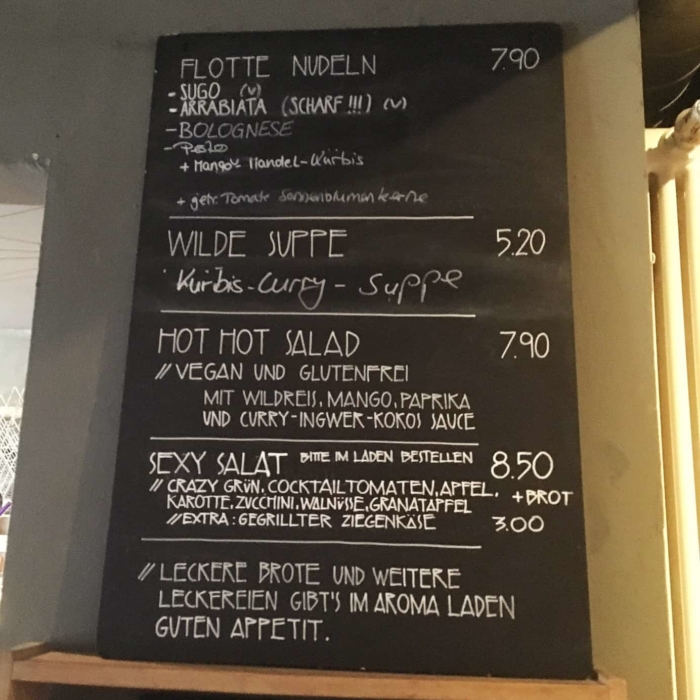 FLOTTE NUDELN 7.90
- SUGO (v)
- ARRABIATA (SCHARF !!!) (v)
- BOLOGNESE
- Pesto
+ Mango Mandel-Kürbis
+ getr. Tomate Sonnenblumenkerne
WILDE SUPPE 5.20
Kürbis-Curry-Suppe
HOT HOT SALAD 7.90
// VEGAN UND GLUTENFREI
MIT WILDREIS, MANGO, PAPRIKA
UND CURRY-INGWER-KOKOS SAUCE
SEXY SALAT BITTE IM LADEN BESTELLEN 8.50
// CRAZY GRÜN, COCKTAILTOMATEN, APFEL, + BROT
KAROTTE, ZUCCHINI, WALNÜSSE, GRANATAPFEL
// EXTRA: GEGRILLTER ZIEGENKÄSE 3.00
// LECKERE BROTE UND WEITERE
LECKEREIEN GIBT'S IM AROMA LADEN
GUTEN APPETIT.